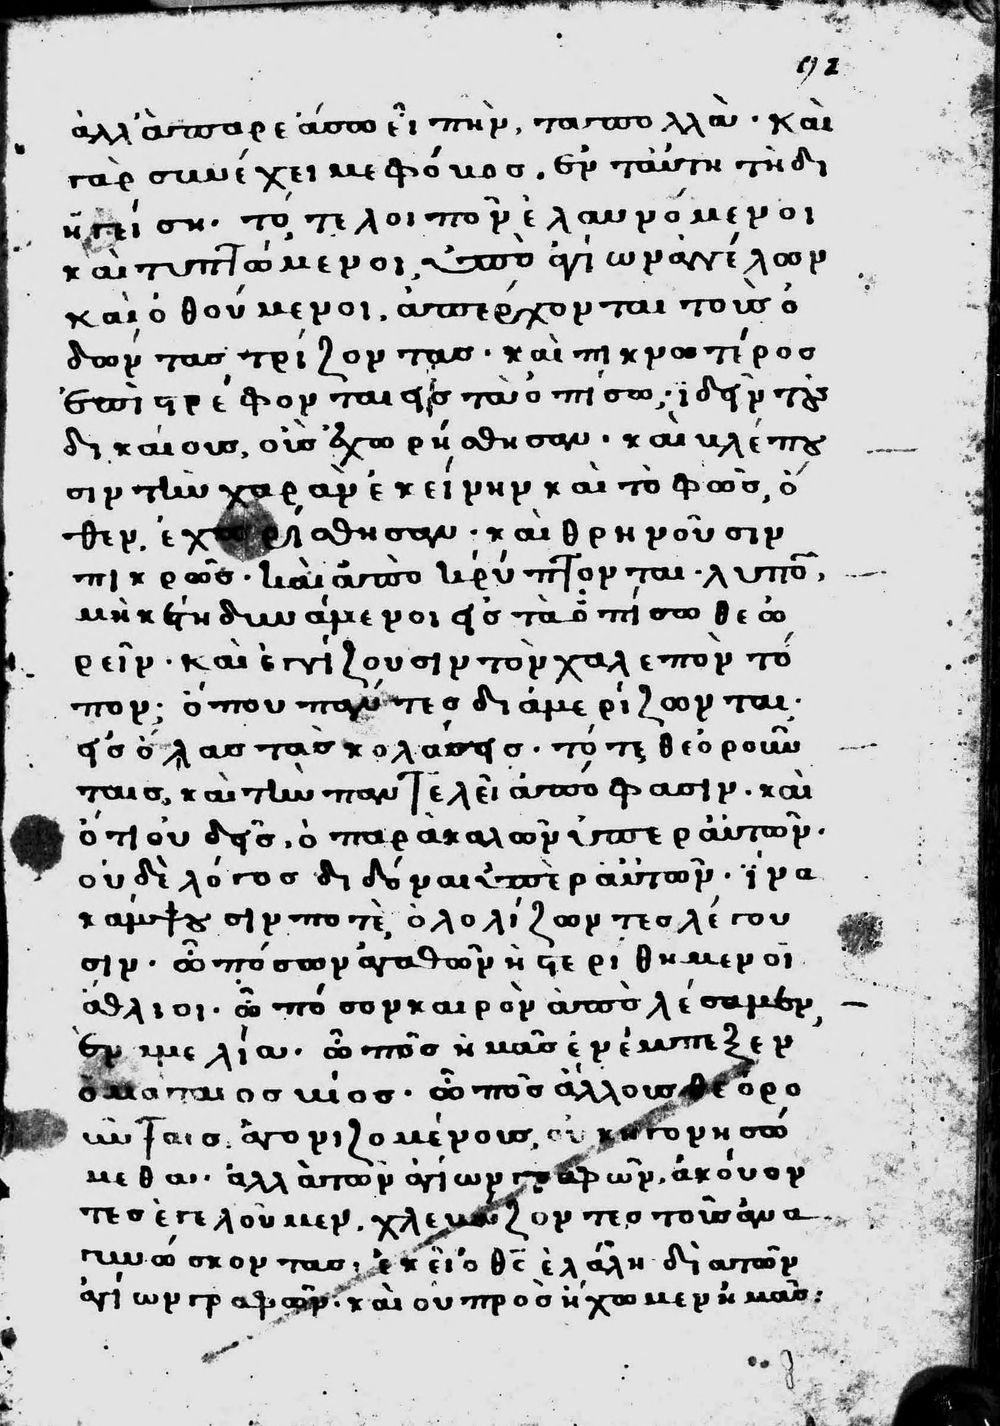 92
ἀλλὰ παρεάσω εἰπῆν, τα πολλὰ· καὶ
γὰρ συνέχει με φόνος. ἐν ταύτη τῆ δι
ηγεί ση· τό, τε λοιποῖν ἐλαυνόμενοι
και τυπτώμενοι, ὑπὸ ἁγίων ἀγγέλων
καὶ ὀθούμενοι. ἀπέρχονται τοὺς ὀ
δών τας τρίζον τας· καὶ πικρωτέρος
ἐπι στρέφονται εἰς τὰ ὀπίσω, ἰδεῖν τοὺς
δικαίους, οὓς ἐχωρήσθησαν· καὶ βλέπου
σιν τὴν χαρὰν ἐκείνην καὶ τὸ φῶς, ὅ
θεν, ἐχωρίσθησαν· καὶ θρηνοῦσιν
πικρῶς· καὶ ἀπο κρύπτονται· λυπὸν,
μὴκέτη δυνάμενοι εἰς τὰ ὀπίσω θεω
ρεῖν· καὶ ἐγγίζουσιν τὸν χαλεπὸν τό
πον; ὅπου πάντες διάμερίζωνται·
εἰς ὅλας τὰς κολάσεις· τό τε θεοροῦν
ταις, καὶ τὴν παντελεῖ ἀπόφασιν· καὶ
ὅτι οὐδεῖς, ὁ παρακαλῶν ὑπερ αὐτῶν·
οὐδὲ λόγος διδόναι ὑπὲρ αὐτῶν· ἵνα
κάμψουσιν ποτὲ, ὀλολίζων τες λέγου
σιν· ὦ πόσων ἀγαθῶν ἡ στερι θημενοῖ
ἄθλιοι· ὦ πόσον καιρὸν ἀπολέσαμεν,
ἐν αμελία· ὦ πῶς ἡμᾶς ἐνέμπεξεν
ὁ μάταιος βίος· ὦ πῶς ἄλλους θεόρο
ῦνταις ἀγονιζομένους, οὐ κητορησώ
μεθα· ἀλλὰ τῶν ἁγίων γραφῶν, ἀκόυον
τες ἐγελοῦμεν, χλευάζοντες τοῦς ἀνα
γινώσκοντας; ἐκεῖ ὁ θς ἐλάλη διὰ τῶν
ἁγίων γραφῶν· καὶ οὐ προσήχωμεν ἡμᾶς: